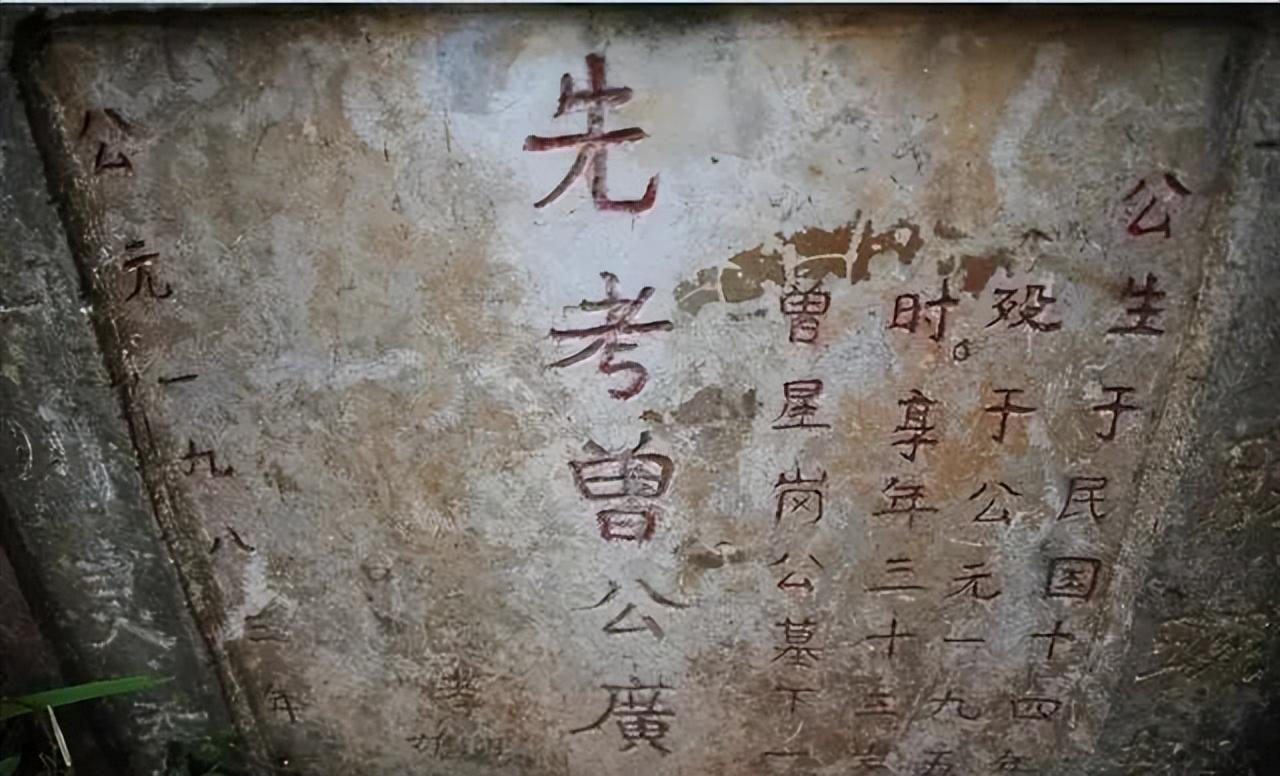 公生于民国十四年
殁于公元一九五
时。享年三十三
曾星岗公墓下一
先考曾公廣
公元一九八三年